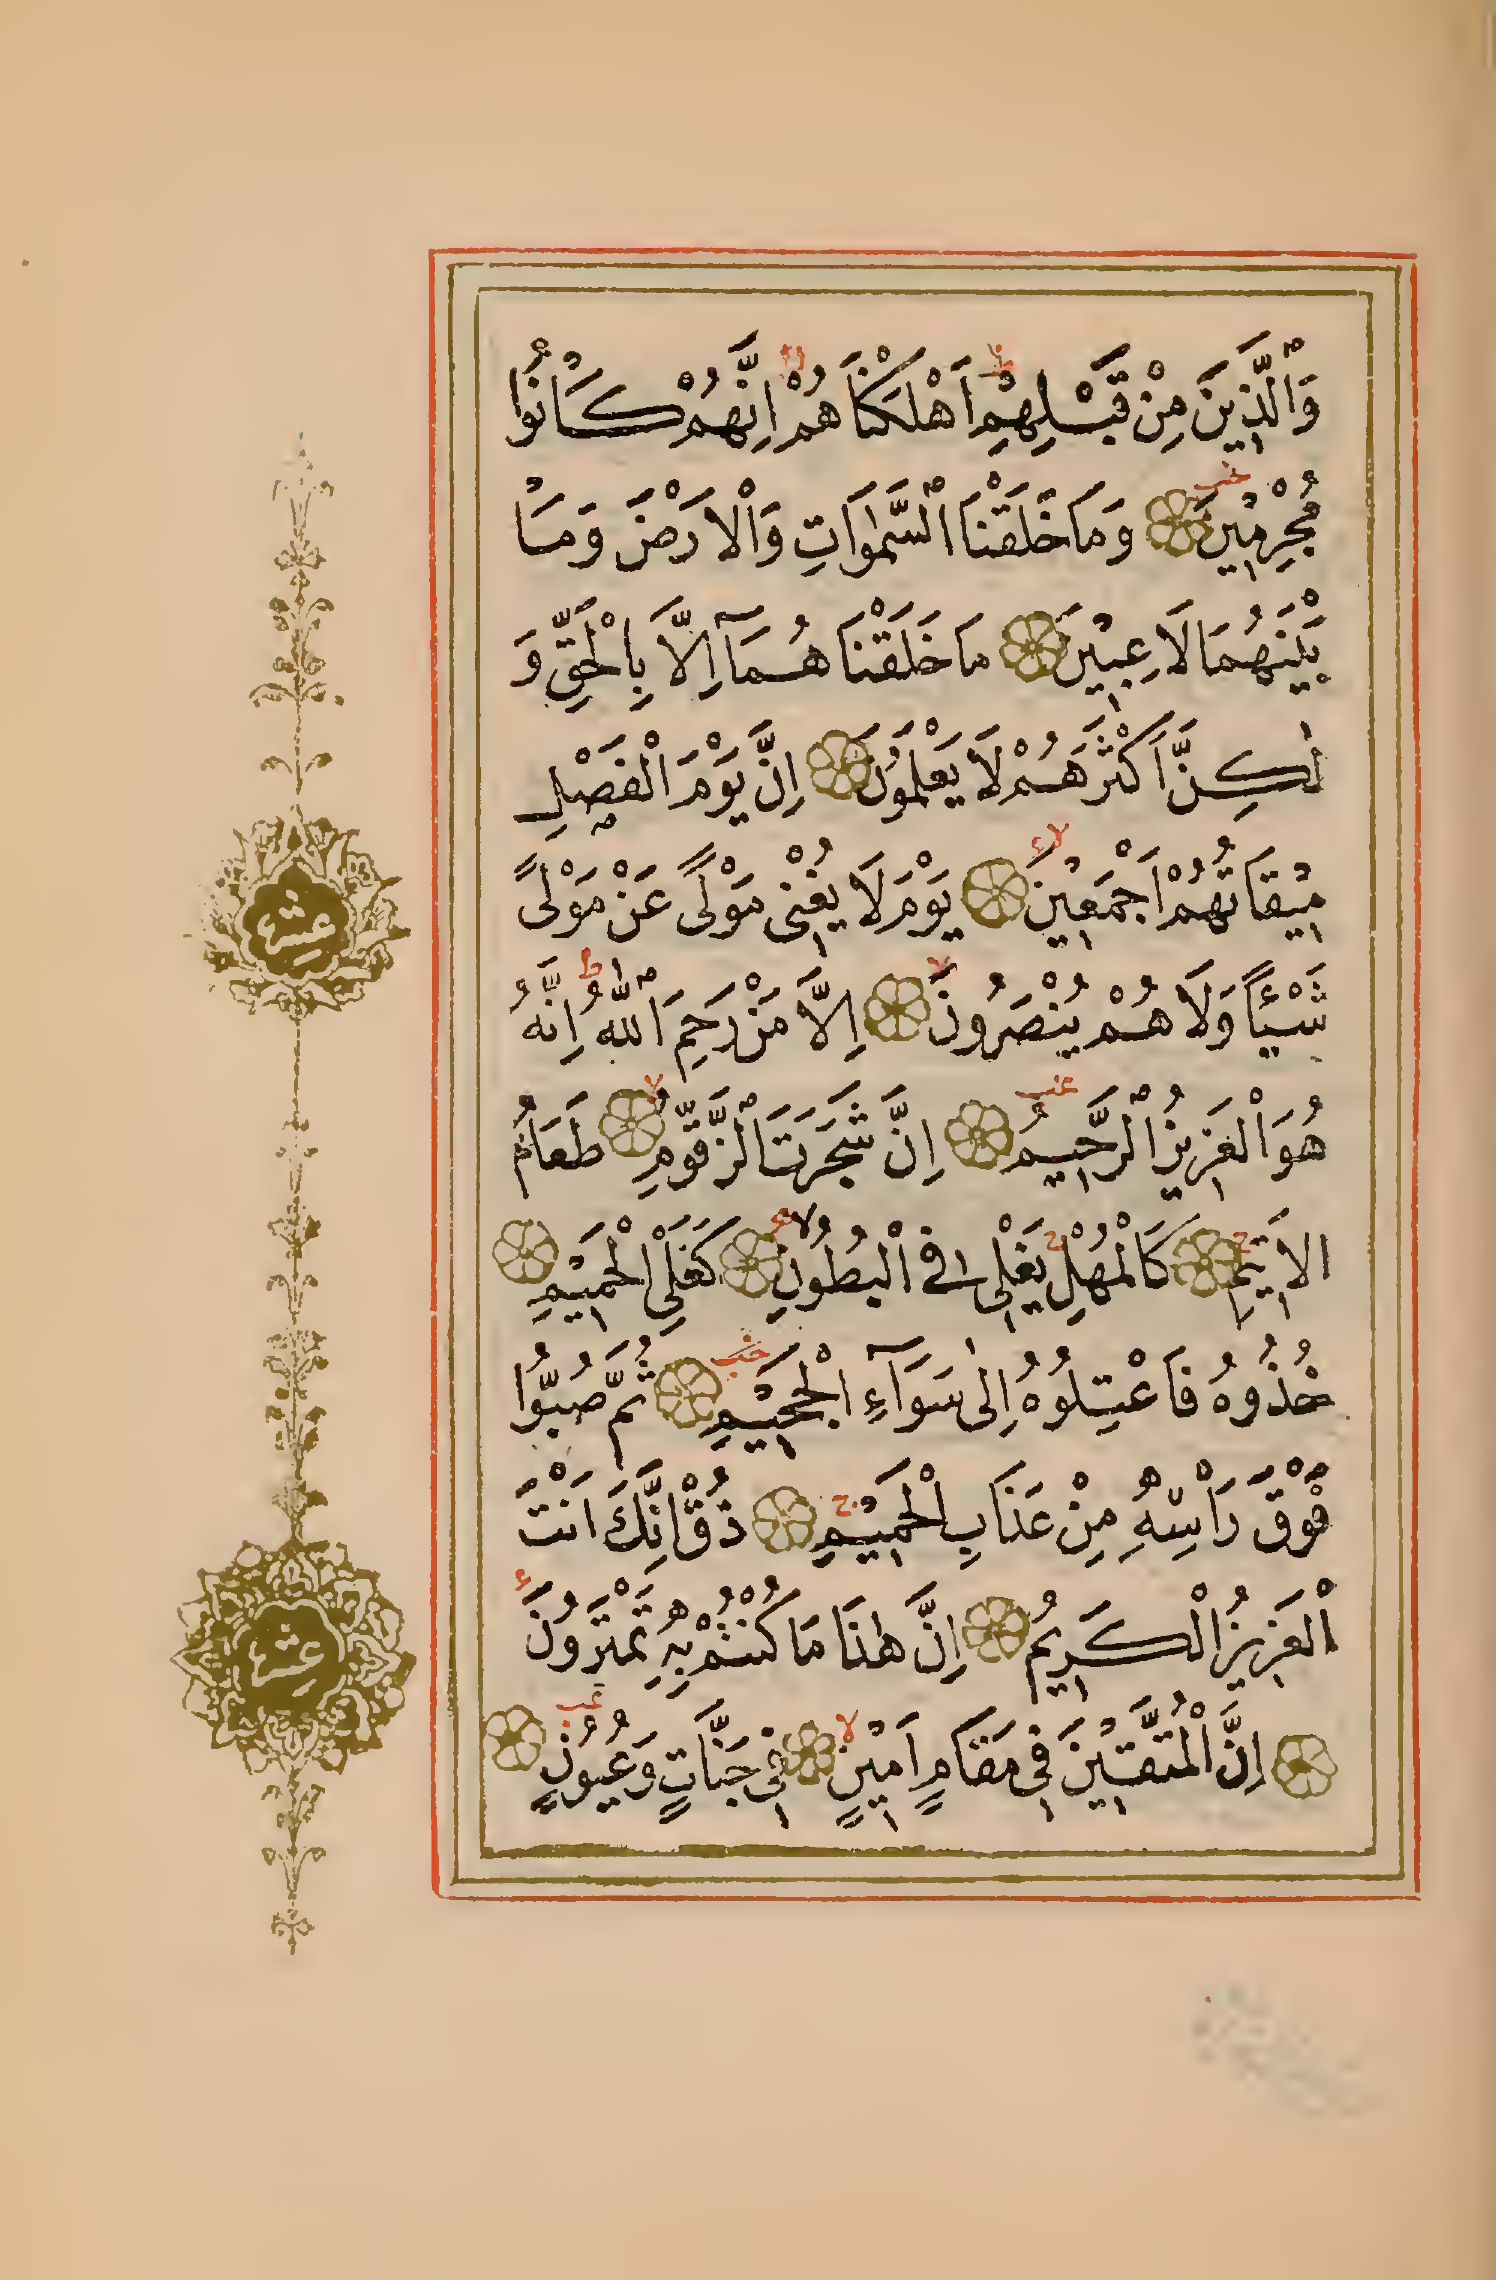 وَالَّذِينَ مِنْ قَبْلِهِمْ ط اَهْلَكْنَاهُمْ ز اِنَّهُمْ كَانُوا
مُجْرِمِينَ وَمَا خَلَقْنَا السَّمٰوَاتِ وَالْاَرْضَ وَمَا
بَيْنَهُمَا لَاعِبِينَ مَا خَلَقْنَاهُمَآ اِلَّا بِالْحَقِّ وَ
لٰكِنَّ اَكْثَرَهُمْ لَا يَعْلَمُونَ اِنَّ يَوْمَ الْفَصْلِ
مِيقَاتُهُمْ اَجْمَعِينَ لا يَوْمَ لَا يُغْنِى مَوْلًى عَنْ مَوْلًى
شَيْئًا وَلَا هُمْ يُنْصَرُونَ لا اِلَّا مَنْ رَحِمَ اللّٰهُ ط اِنَّهُ
هُوَ الْعَزِيزُ الرَّحِيمُ اِنَّ شَجَرَتَ الزَّقُّومِ لا طَعَامُ
الْاَثِيمِ ج كَالْمُهْلِ ج يَغْلِى فِى الْبُطُونِ لا كَغَلْىِ الْحَمِيمِ
خُذُوهُ فَاعْتِلُوهُ اِلٰى سَوَآءِ الْجَحِيمِ ثُمَّ صُبُّوا
فَوْقَ رَاْسِهِ مِنْ عَذَابِ الْحَمِيمِ ج ذُقْ اِنَّكَ اَنْتَ
الْعَزِيزُ الْكَرِيمُ اِنَّ هٰذَا مَا كُنْتُمْ بِهِ تَمْتَرُونَ
اِنَّ الْمُتَّقِينَ فِى مَقَامٍ اَمِينٍ لا فِى جَنَّاتٍ وَعُيُونٍ
عشر
عشر